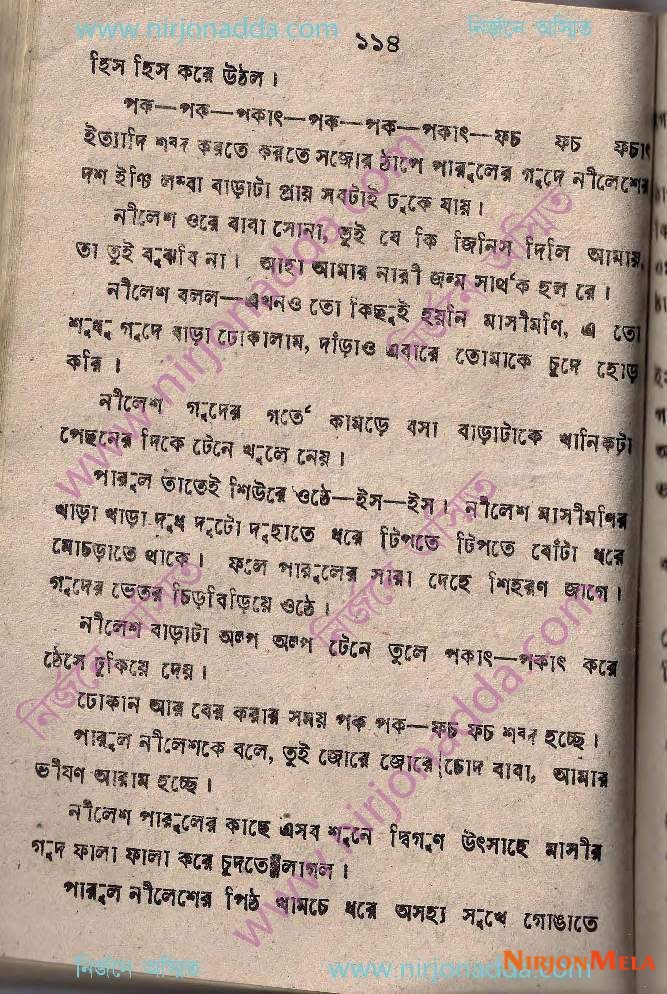 www.nirjonadda.com
নির্জনে অস্মিত
১১৪
হিস হিস করে উঠল।
পক—পক—পকাৎ—পক—পক—পকাৎ—ফচ ফচ ফচাৎ
ইত্যাদি শব্দ করতে করতে সজোর ঠাপে পারুলের গুদে নীলেশের
দশ ইঞ্চি লম্বা বাড়াটা প্রায় সবটাই ঢুকে যায়।
নীলেশ ওরে বাবা সোনা, তুই যে কি জিনিস দিলি আমায়,
তা তুই বুঝবি না। আহা আমার নারী জন্ম সার্থক হল রে।
নীলেশ বলল—এখনও তো কিছুই হয়নি মাসীমণি, এ তো
শুধু গুদে বাড়া ঢোকালাম, দাঁড়াও এবারে তোমাকে চুদে হোড়
করি।
নীলেশ গুদের গর্তে কামড়ে বসা বাড়াটাকে খানিকটা
পেছনের দিকে টেনে খুলে নেয়।
পারুল তাতেই শিউরে ওঠে—ইস—ইস। নীলেশ মাসীমণির
খাড়া খাড়া দুধ দুটো দুহাতে ধরে টিপতে টিপতে বোঁটা ধরে
মোচড়াতে থাকে। ফলে পারুলের সারা দেহে শিহরণ জাগে।
গুদের ভেতর চিড়বিড়িয়ে ওঠে।
নীলেশ বাড়াটা অল্প অল্প টেনে তুলে পকাৎ—পকাৎ করে
ঠেসে ঢুকিয়ে দেয়।
ঢোকান আর বের করার সময় পক পক—ফচ ফচ শব্দ হচ্ছে।
পারুল নীলেশকে বলে, তুই জোরে জোরে চোদ বাবা, আমার
ভীষণ আরাম হচ্ছে।
নীলেশ পারুলের কাছে এসব শুনে দ্বিগুণ উৎসাহে মাসীর
গুদ ফালা ফালা করে চুদতে লাগল।
পারুল নীলেশের পিঠ খামচে ধরে অসহ্য সুখে গোঙাতে
www.nirjonadda.com
নির্জনে অস্মিত
www.nirjonadda.com
নির্জনে অস্মিত
www.nirjonadda.com
নির্জনে অস্মিত
NIRJONMELA
নির্জনে অস্মিত
www.nirjonadda.com